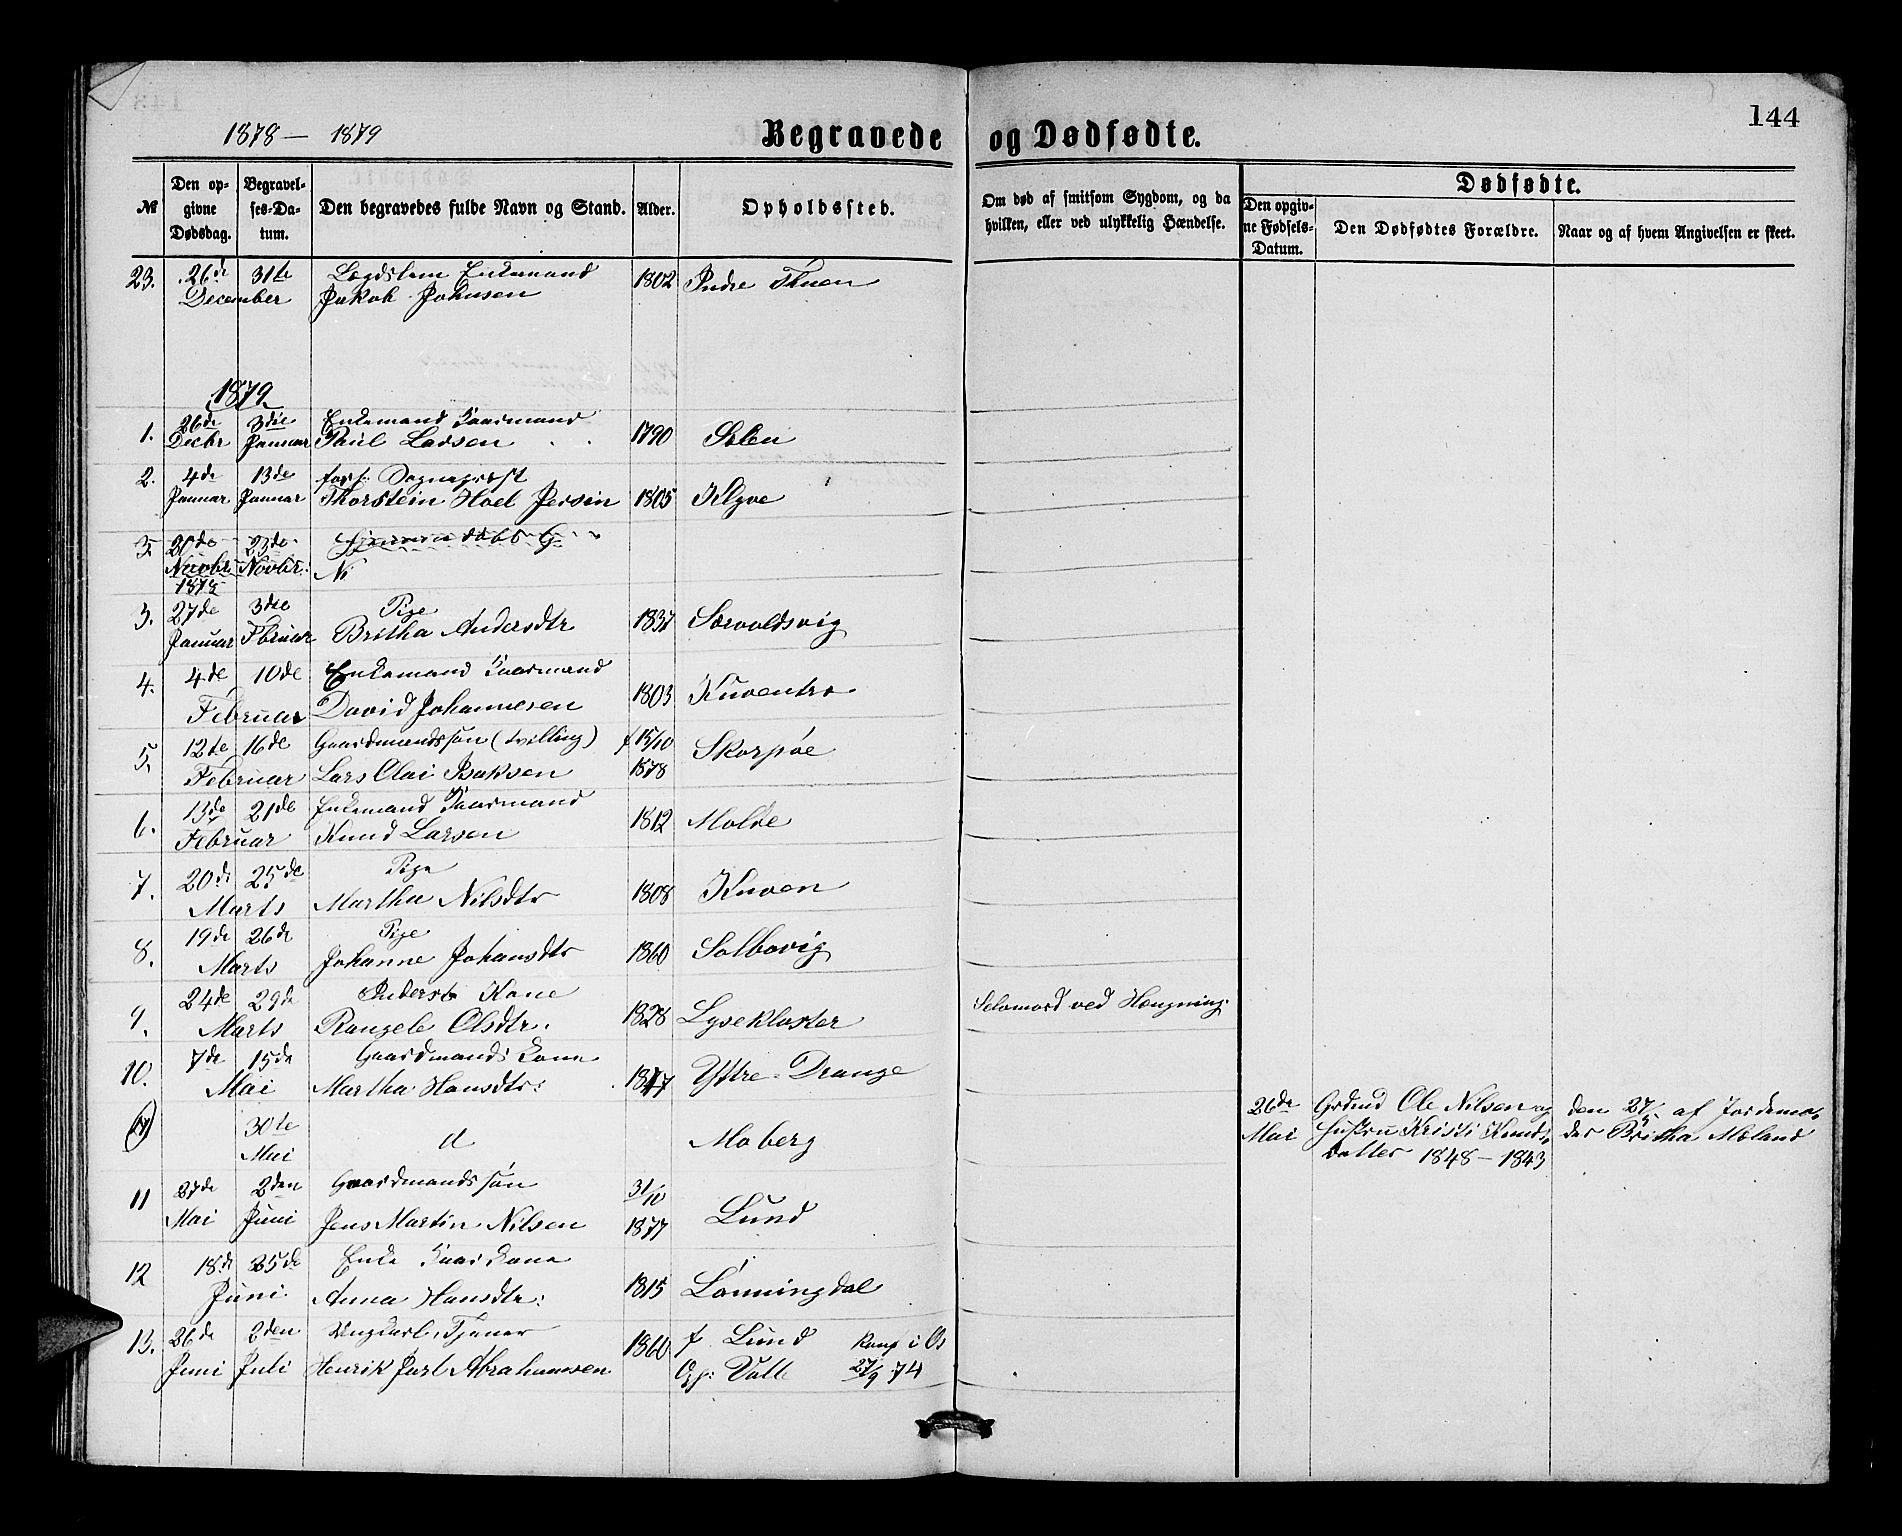 144
1878 — 1879
Begravede og Dødfødte.
№
Den op-
givne
Dødsdag.
Begravel-
ses-Da-
tum.
Den begravedes fulde Navn og Stand.
Alder.
Opholdssted.
Om død af smitsom Sygdom, og da
hvilken, eller ved ulykkelig Hændelse.
Dødfødte.
Den opgiv-
ne Fødsels-
Datum.
Den Dødfødtes Forældre.
Naar og af hvem Angivelsen er skeet.
23. 26de 31te Lægdslem Enkemand 1802 Indre
December Jakob Johnsen
1879
26de 3die Enkemand Kaarmand
1. Decbr Januar Paul Larsen 1790 Solen
2. 4de 13de
Januar Januar Thorstein Hoel Jersin 1805 Klyve
3. 20de 23de
Novbr Novbr: N
1878
3. 27de 3die Pige 1837
Januar Fbruar Britha Andersdtr Sørvoldsvig
4. 4de 10de Enkemand Kaarmand 1803
Februar David Johannesen Kuventræ
5. 12te 16de Gaardmandssøn (tvilling) f 15/10 Skorpøe
Februar Lars Olai Isaksen 1878
6. 13de 21de Enkemand Kaarmand 1812 Molde
Februar Knud Larsen
7. 20de 25de Pige 1808 Kuven
Marts Martha Nilsdtr
8. 19de 26de Pige 1860 Solbovig
Marts Johanne Johansdtr
9. 24de 29de Inderst Kone 1828 Lysekloster Selvmord ved Hængning.
Marts Rangele Olsdtr.
10. 7de 15de Gaardmands Kone 1817 Yttre-Drange
Mai Martha Hansdtr:
30te d Moberg
Mai
26de Grdmd Ole Nilsen og den 27/5 af Jordemo-
Mai Hustru Kristi Knuds- der Britha Moland
datter 1848 — 1843
11 27de 2den Gaardmandssøn 31/10 Lund
Mai Juni Jens Martin Nilsen 1877
12 18de 25de Enke Kaarkone 1815 Lønningdal
Juni Anna Hansdtr:
13. 26de 2den Ungkarl, Tjener 1860 f Lund Konf i Os
Juni Juli Henrik Jarl Abrahamsen Op: Valle 27/9 74